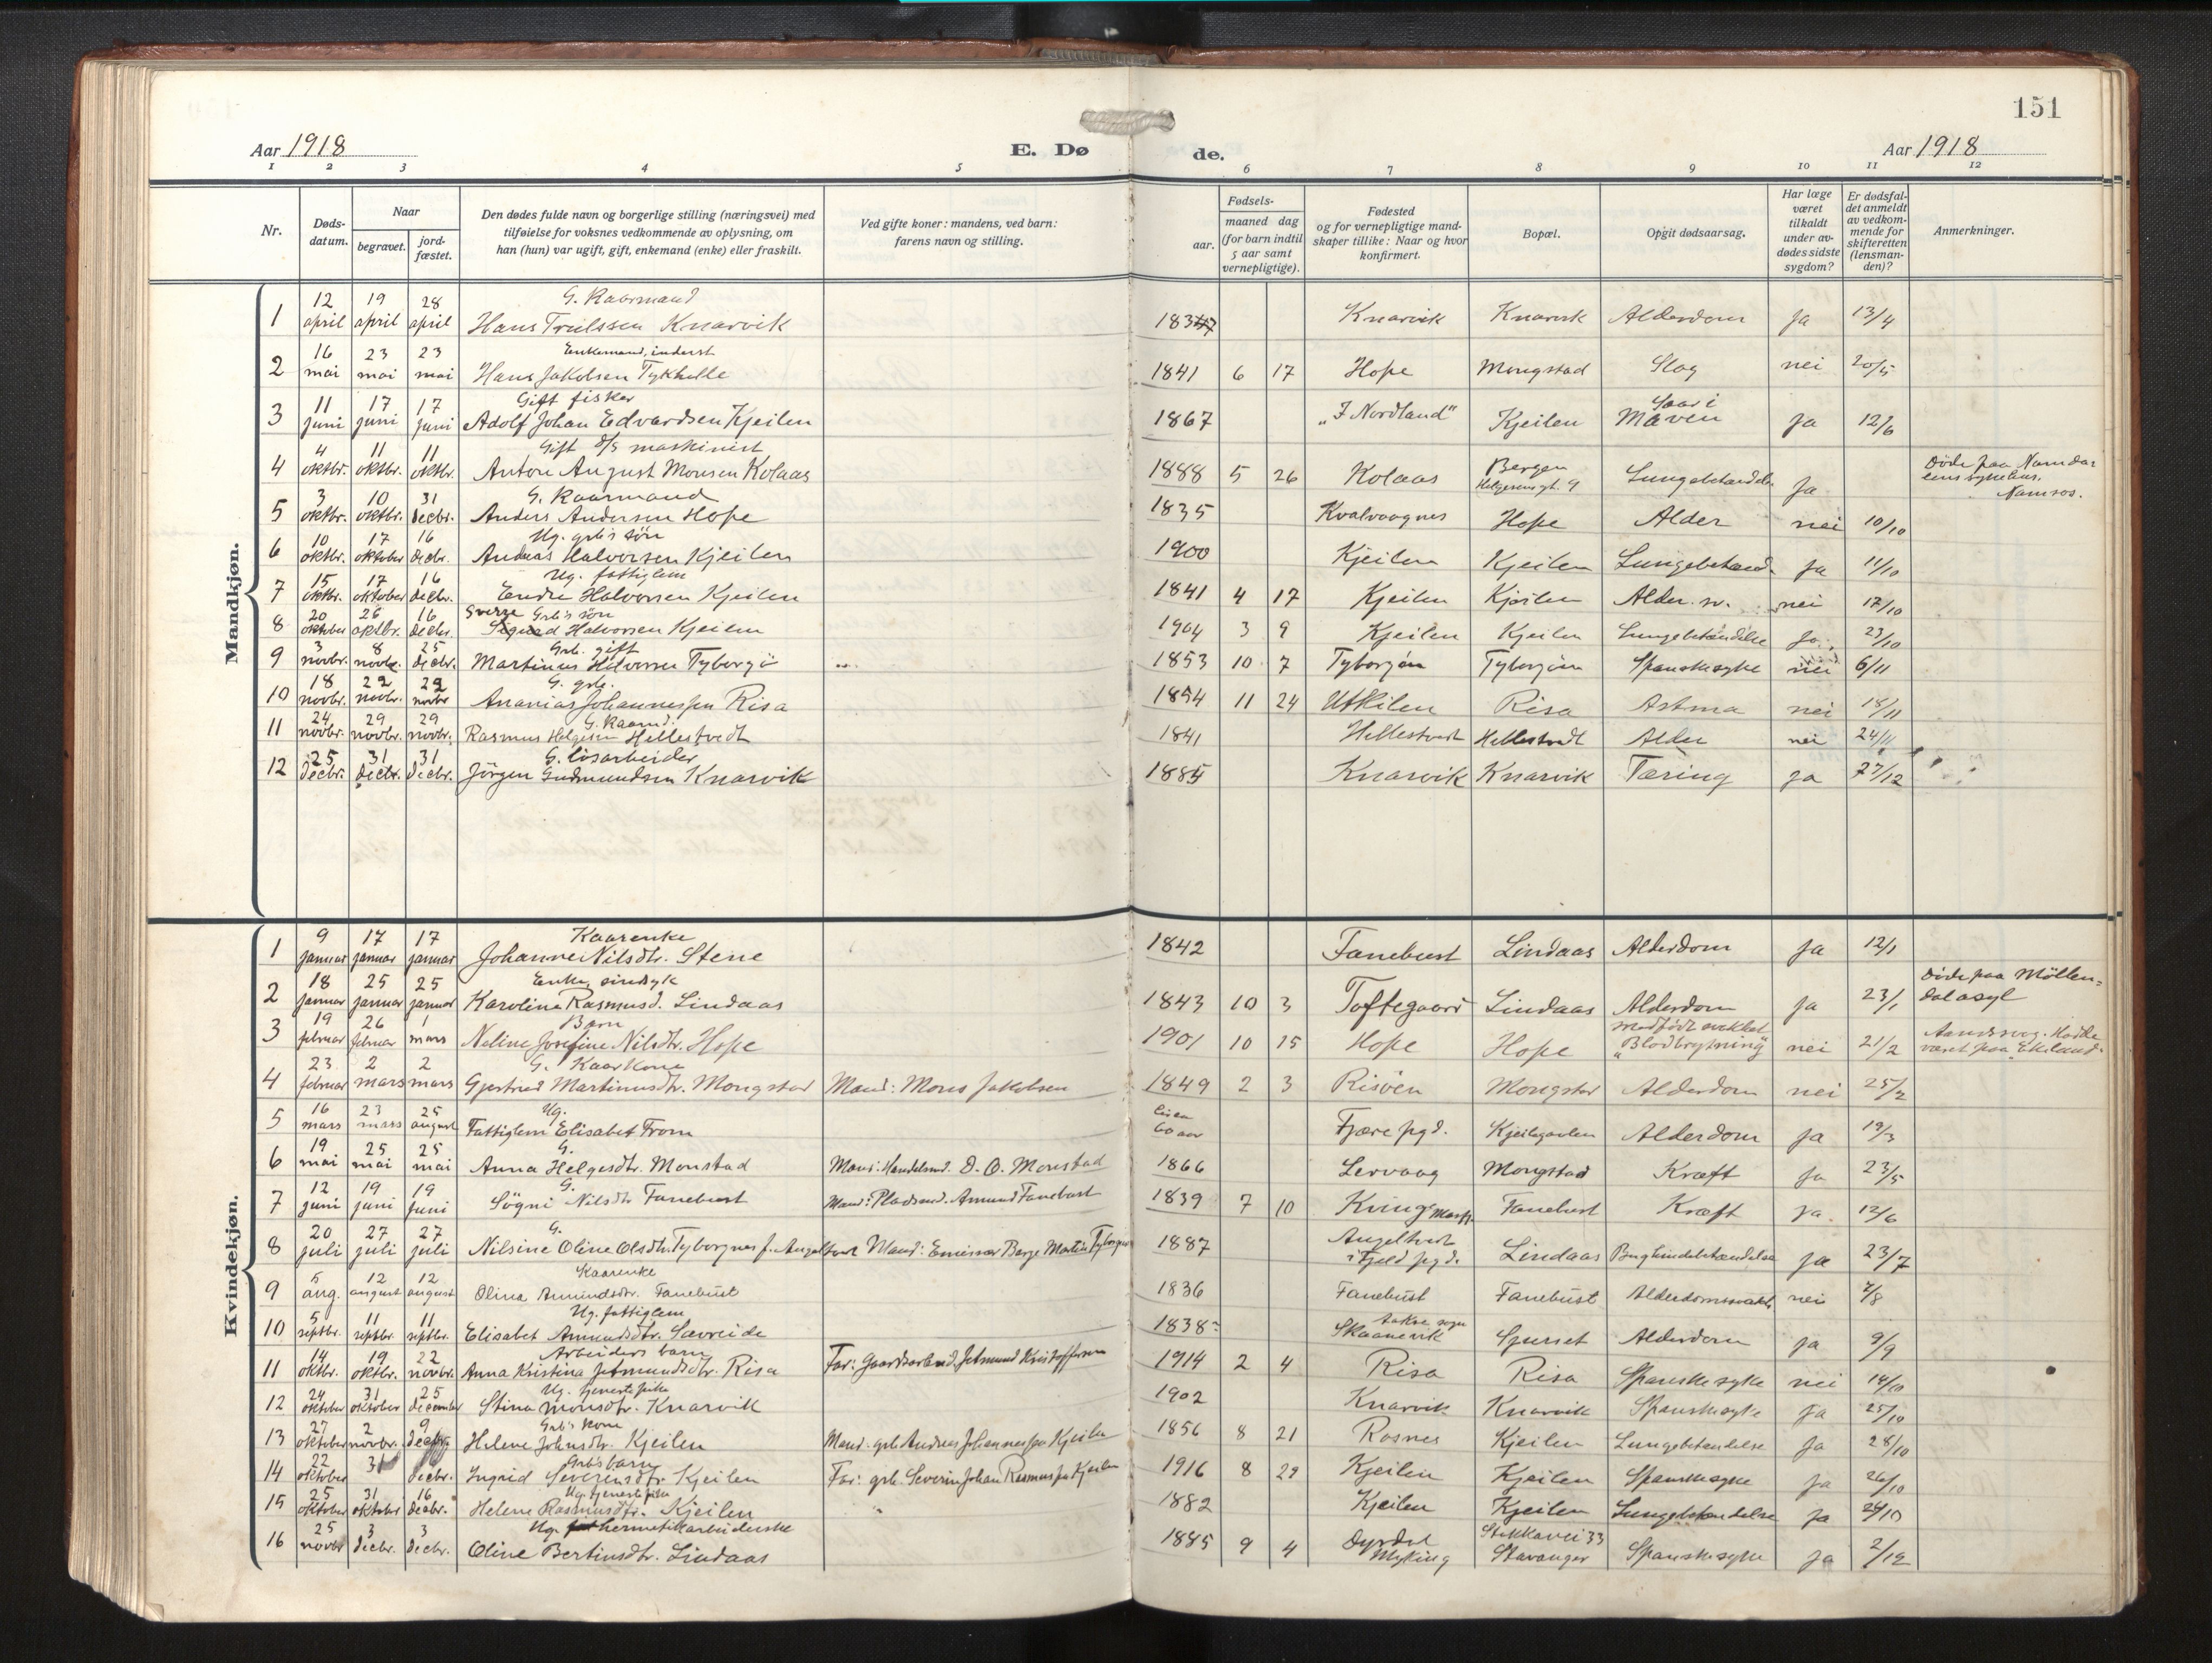 151
Aar 1918 E. Dø de. Aar 1918
1 2 3 4 5 6 7 8 9 10 11 12
Nr. Døds-datum. Naar begravet. jord-fæstet. Den dødes fulde navn og borgerlige stilling (næringsvei) med tilføielse for voksnes vedkommende av oplysning, om han (hun) var ugift, gift, enkemand (enke) eller fraskilt. Ved gifte koner: mandens, ved barn: farens navn og stilling. Fødsels- aar. maaned dag (for barn indtil 5 aar samt vernepligtige). Fødested og for vernepligtige mand-skaper tillike: Naar og hvor konfirmert. Bopæl. Opgit dødsaarsag. Har læge været tilkaldt under av-dødes sidste sygdom? Er dødsfal-det anmeldt av vedkom-mende for skifteretten (lensman-den)? Anmerkninger.
Mandkjøn.
1 12 april 19 april 28 april G. Kaarmand Hans Trulssen Knarvik 1834 Knarvik Knarvik Alderdom Ja 13/4
2 16 mai 23 mai 23 mai Enkemand, inderst Hans Jakobsen Tykhelle 1841 6 17 Hope Mongstad Slag nei 20/5
3 11 juni 17 juni 17 juni Gift fisker Adolf Johan Edvardsen Kjeilen 1867 "I Nordland" Kjeilen Saar i Maven Ja 12/6
4 4 oktbr. 11 oktbr. 11 oktbr. Gift d/s maskinist Anton August Monsen Kolaas 1888 5 26 Kolaas Bergen Helgesensgt. 9 Lungebetændels Ja Døde paa Namdalens sykehus, Namsos.
5 3 oktbr. 10 oktbr. 31 decbr. G. Kaarmand Anders Andersen Hope 1835 Kvalvaagnes Hope Alder nei 10/10
6 10 oktbr. 17 oktober 16 decbr. Ug. grb's søn Andreas Halvorsen Kjeilen 1900 Kjeilen Kjeilen Lungebetænd. Ja 11/10
7 15 oktbr. 17 oktober 16 decbr. Ug. fattiglem Endre Halvorsen Kjeilen 1841 4 17 Kjeilen Kjeilen Alder. sv. nei 17/10
8 20 oktober 26 oktbr. 16 decbr. Sverre Grb's søn Halvorsen Kjeilen 1904 3 9 Kjeilen Kjeilen Lungebetændelse Ja 23/10
9 3 novbr. 8 novbr. 25 decbr. Grb. gift Martinus Halvorsen Tyborgö 1853 10 7 Tyborgøn Tyborgøn Spanskesyke nei 6/11
10 18 novbr. 22 novbr. 22 novbr G. grb. Ananias Johannessen Risa 1854 11 24 Utkilen Risa Astma nei 18/11
11 24 novbr. 29 novbr. 29 novbr. G. Kaarmd. Rasmus Helgesen Hellestvedt 1841 Hellestvedt Hellestvedt Alder nei 24/11
12 25 decbr. 31 decbr. 31 decbr. G. løsarbeider Jørgen Gudmundsen Knarvik 1885 Knarvik Knarvik Tæring ja 27/12
Kvindekjøn.
1 9 januar 17 januar 17 januar Kaarenke Johanne Nilsdtr. Stene 1842 Fanebust Lindaas Alderdom Ja 12/1
2 18 januar 25 januar 25 januar Enke, sindsyk Karoline Rasmusd. Lindaas 1843 10 3 Toftegaard Lindaas Alderdom Ja 23/1 Døde paa Möllendal asyl
3 19 februar 26 februar 1 mars Barn Neline Josefine Nilsdtr. Hope 1901 10 15 Hope Hope medfödt svekket "Blodbrytning" nei 21/2 Aandssvag. Hadde været paa Ekeland.
4 23 februar 2 mars 2 mars G. Kaarkone Gjertrud Martinusdtr. Mongstad Mand: Mons Jakobsen 1849 2 3 Risöen Mongstad Alderdom nei 25/2
5 16 mars 23 mars 25 august Ug. Fattiglem Elisabet From circa 60 aar Fjære pgd. Kjeilegavlen Alderdom Ja 19/3
6 19 mai 25 mai 25 mai G. Anna Helgesdtr. Monstad Mand: Handelsmd. D. O. Monstad 1866 Lervaag Mongstad Kræft Ja 23/5
7 12 juni 19 juni 19 juni G. Sögni Nilsdtr Fanebust Mand: Pladsmd. Amund Fanebust 1839 7 10 Kvinge Masfj. Fanebust Kræft ja. 12/6
8 20 juli 27 juli 27 juli G. Nilsine Oline Olsdtr. Tyborgnes f. Angeltvedt Mand: Emissær Berge Martin Tyborgnes 1887 Angeltvedt i Fjeld pgd. Lindaas Bughindebetændelse Ja 23/7
9 5 aug. 12 august 12 august Kaarenke Olina Amundsdtr. Fanebust 1836 Fanebust Fanebust Alderdomssvakh. nei 7/8
10 5 septbr. 11 septbr. 11 septbr. Ug. fattiglem Elisabet Amundsdtr. Sævreide 1838 Skaanevik Spurset Alderdom Ja 9/9
11 14 oktbr. 19 oktbr. 22 novbr. Arbeiders barn Anna Kristina Jetmundsdtr. Risa Far: Gaardsarbeid. Jetmund Kristoffersen 1914 2 4 Risa Risa Spanskesyke nei 14/10
12 24 oktober 31 oktober 25 december Ug. tjenestepike Stina Monsdtr. Knarvik 1902 Knarvik Knarvik Spanskesyke Ja 25/10
13 27 oktober 2 novbr. 9 decbr. Grb's kone Helene Johnsdtr. Kjeilen Mand: grb. Andreas Johannessen Kjeilen 1856 8 21 Rosnes Kjeilen Lungebetændelse Ja 28/10
14 22 oktober 31 decbr. Grb's barn Ingrid Severinsdtr. Kjeilen Far: grb. Severin Johan Rasmussen Kjeilen 1916 8 29 Kjeilen Kjeilen Spanskesyke Ja 26/10
15 25 oktober 31 oktober 16 decbr. Ug. tjenestepike Helene Rasmusdtr. Kjeilen 1882 Kjeilen Kjeilen Lungebetændelse Ja 29/10
16 25 novbr 3 decbr. 3 decbr. Ug. hermetikarbeiderske Oline Bertinsdtr. Lindaas 1885 9 4 Dyrdal Myking Stokkavei 33 Stavanger Spanskesyke Ja 2/12